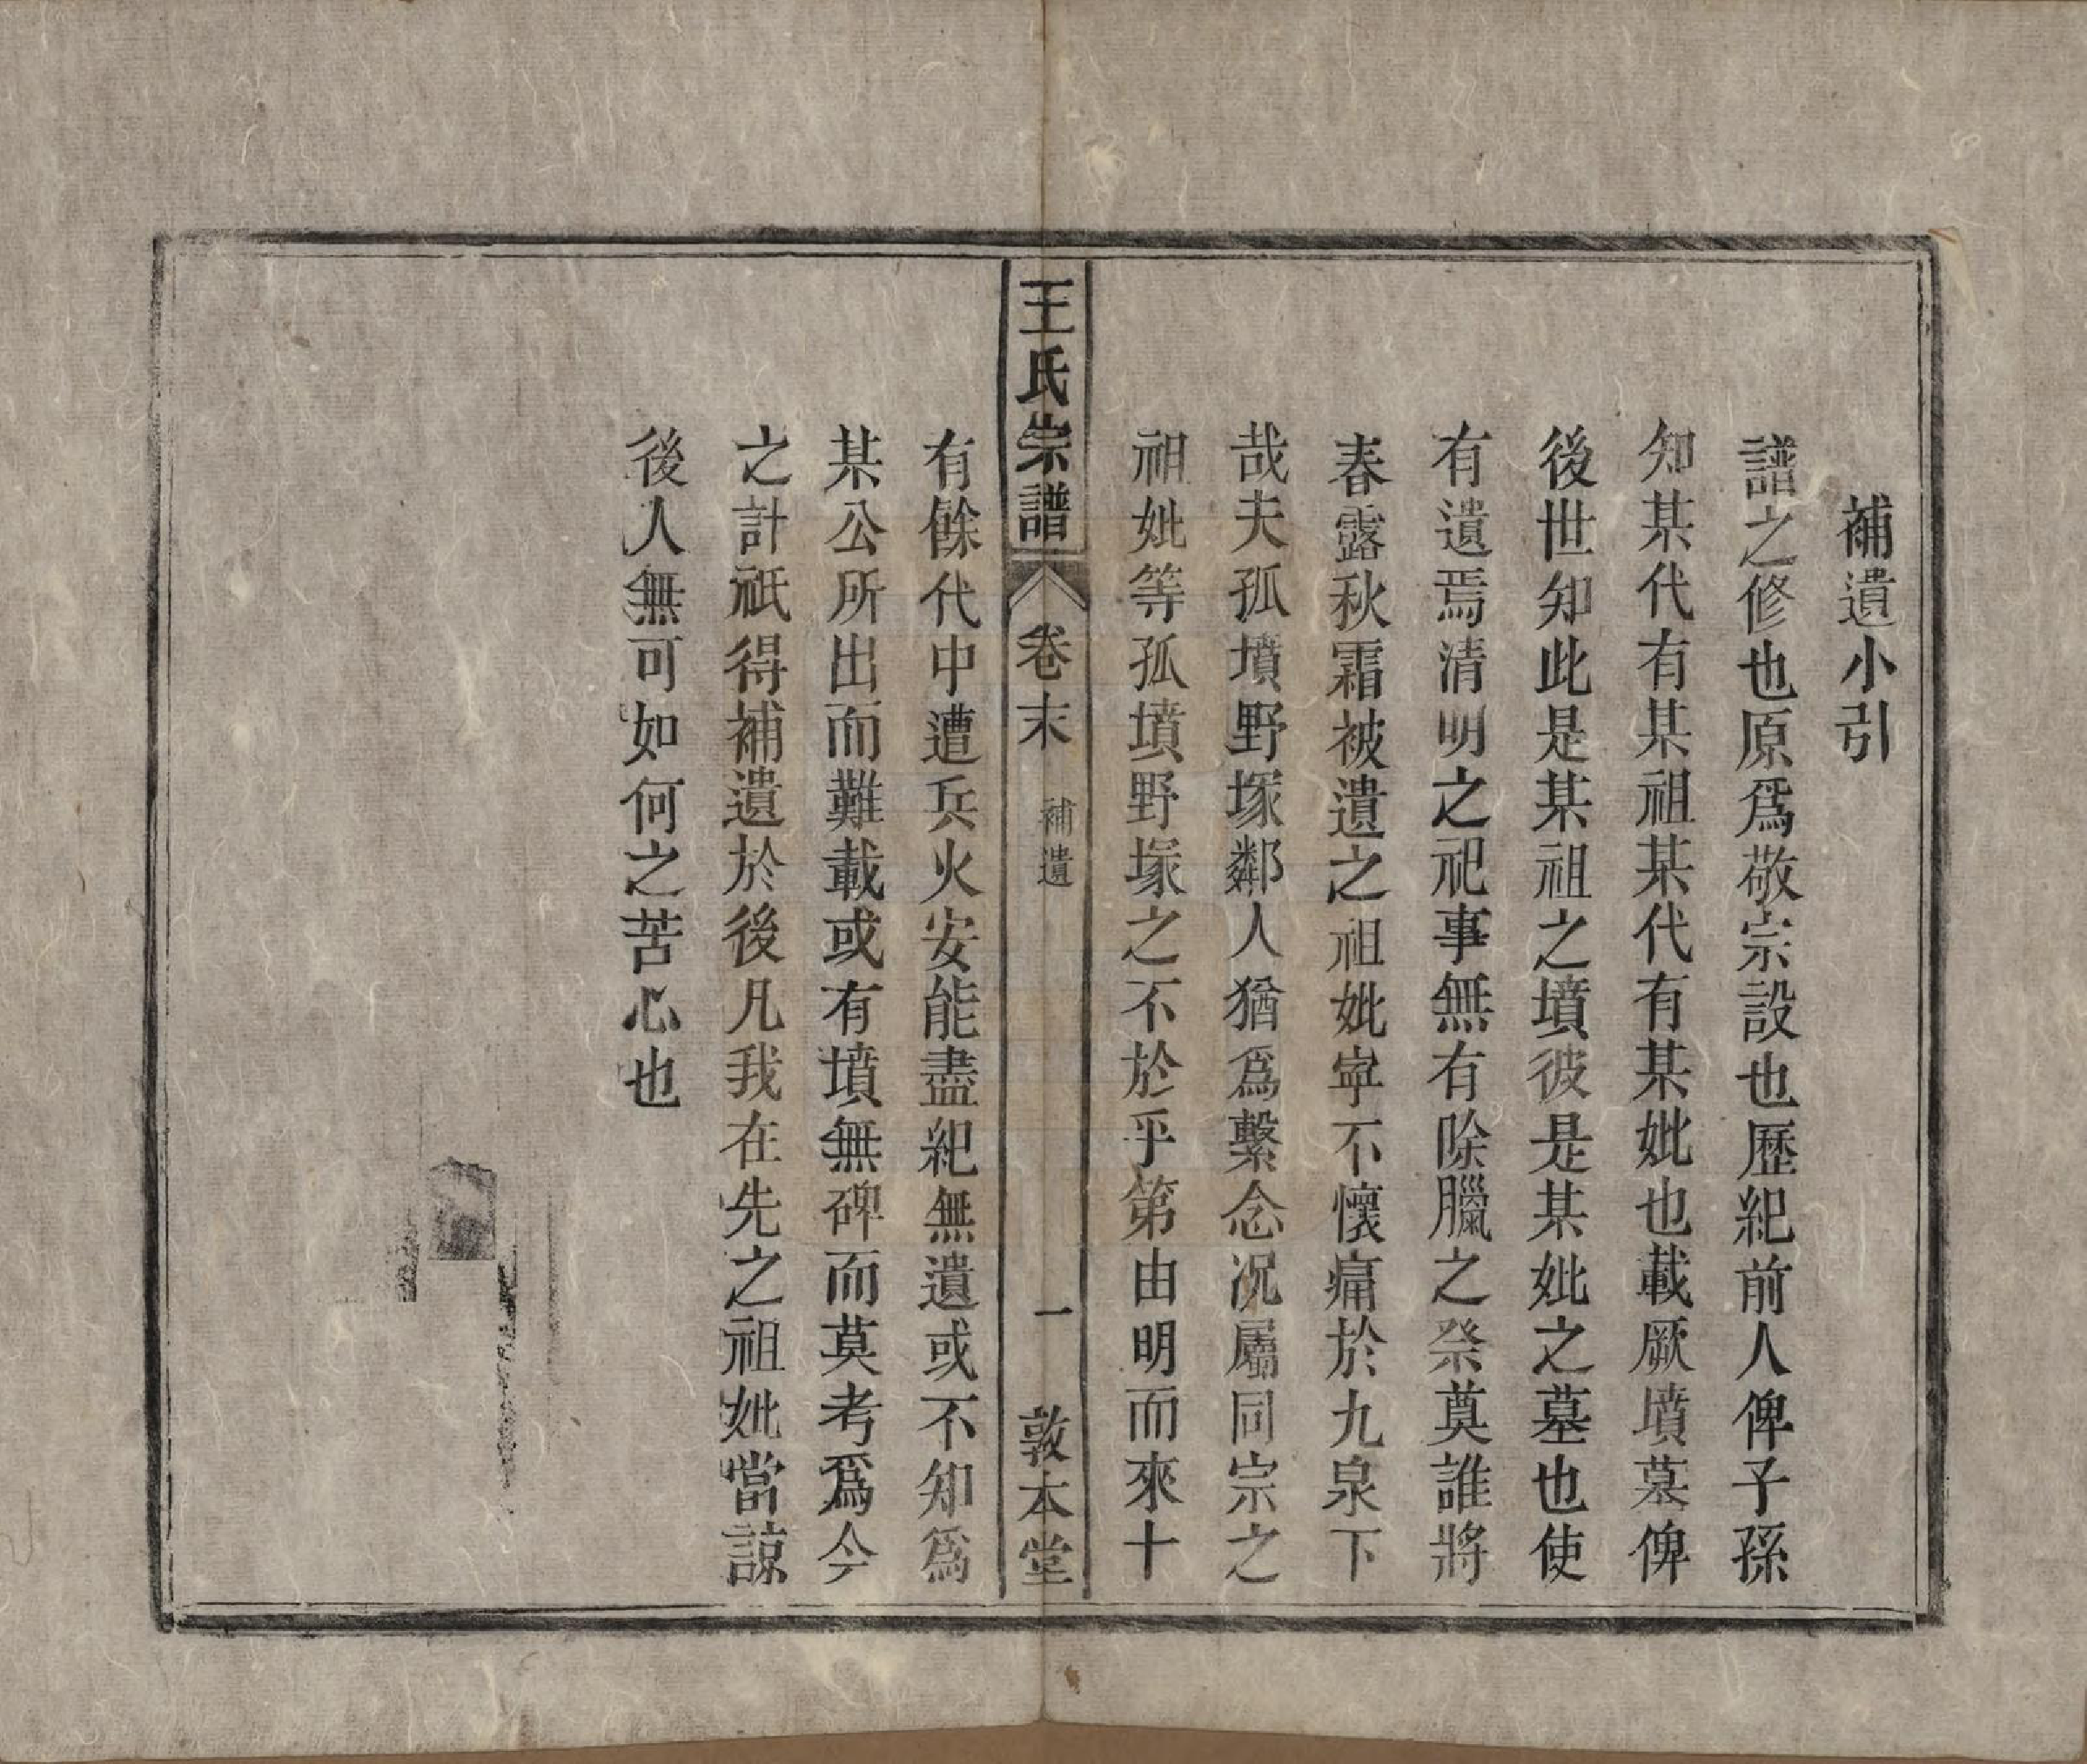 補遺小引
譜之修也原爲敬宗設也歷紀前人俾子孫
知某代有某祖某代有某妣也載厥墳墓俾
後世知此是某祖之墳彼是某妣之墓也使
有遺焉清明之祀事無有除臘之祭奠誰將
春露秋霜被遺之祖妣寧不懷痛於九泉下
哉夫孤墳野塚鄰人猶爲繫念况屬同宗之
祖妣等孤墳野塚之不於乎第由明而來十
王氏宗譜 卷末 補遺 一 敦本堂
有餘代中遭兵火安能盡紀無遺或不知爲
某公所出而難載或有墳無碑而莫考爲今
之計祇得補遺於後凡我在先之祖妣當諒
後人無可如何之苦心也